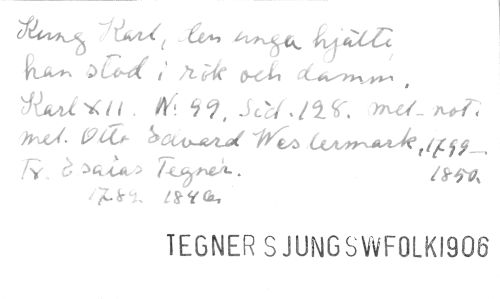 Kung Karl, den unga hjälte,
han stod i rök och damm.
Karl XII. N: 99, Sid. 128. mel-not.
mel. Otto Edvard Westermark, 1799-
Tx. Esaias Tegnér. 1850.
1782. 1846.
TEGNER SJUNG SWFOLK1906